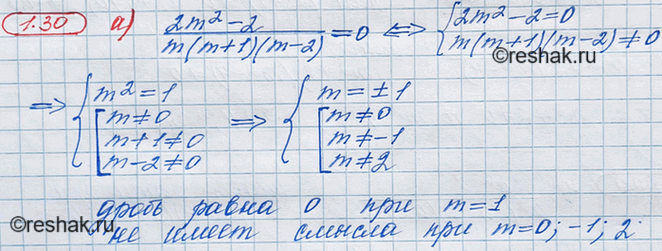 1.30 а) (2m² - 2)/(m(m+1)(m-2)) = 0 ⟺ { 2m² - 2 = 0
m(m+1)(m-2) ≠ 0
©reshak.ru
⟹ { m² = 1 ⟹ { m = ±1
[ m ≠ 0 [ m ≠ 0
m+1 ≠ 0 m ≠ -1
m-2 ≠ 0 m ≠ 2
дробь равна 0 при m=1
не имеет смысла при m=0; -1; 2
©reshak.ru